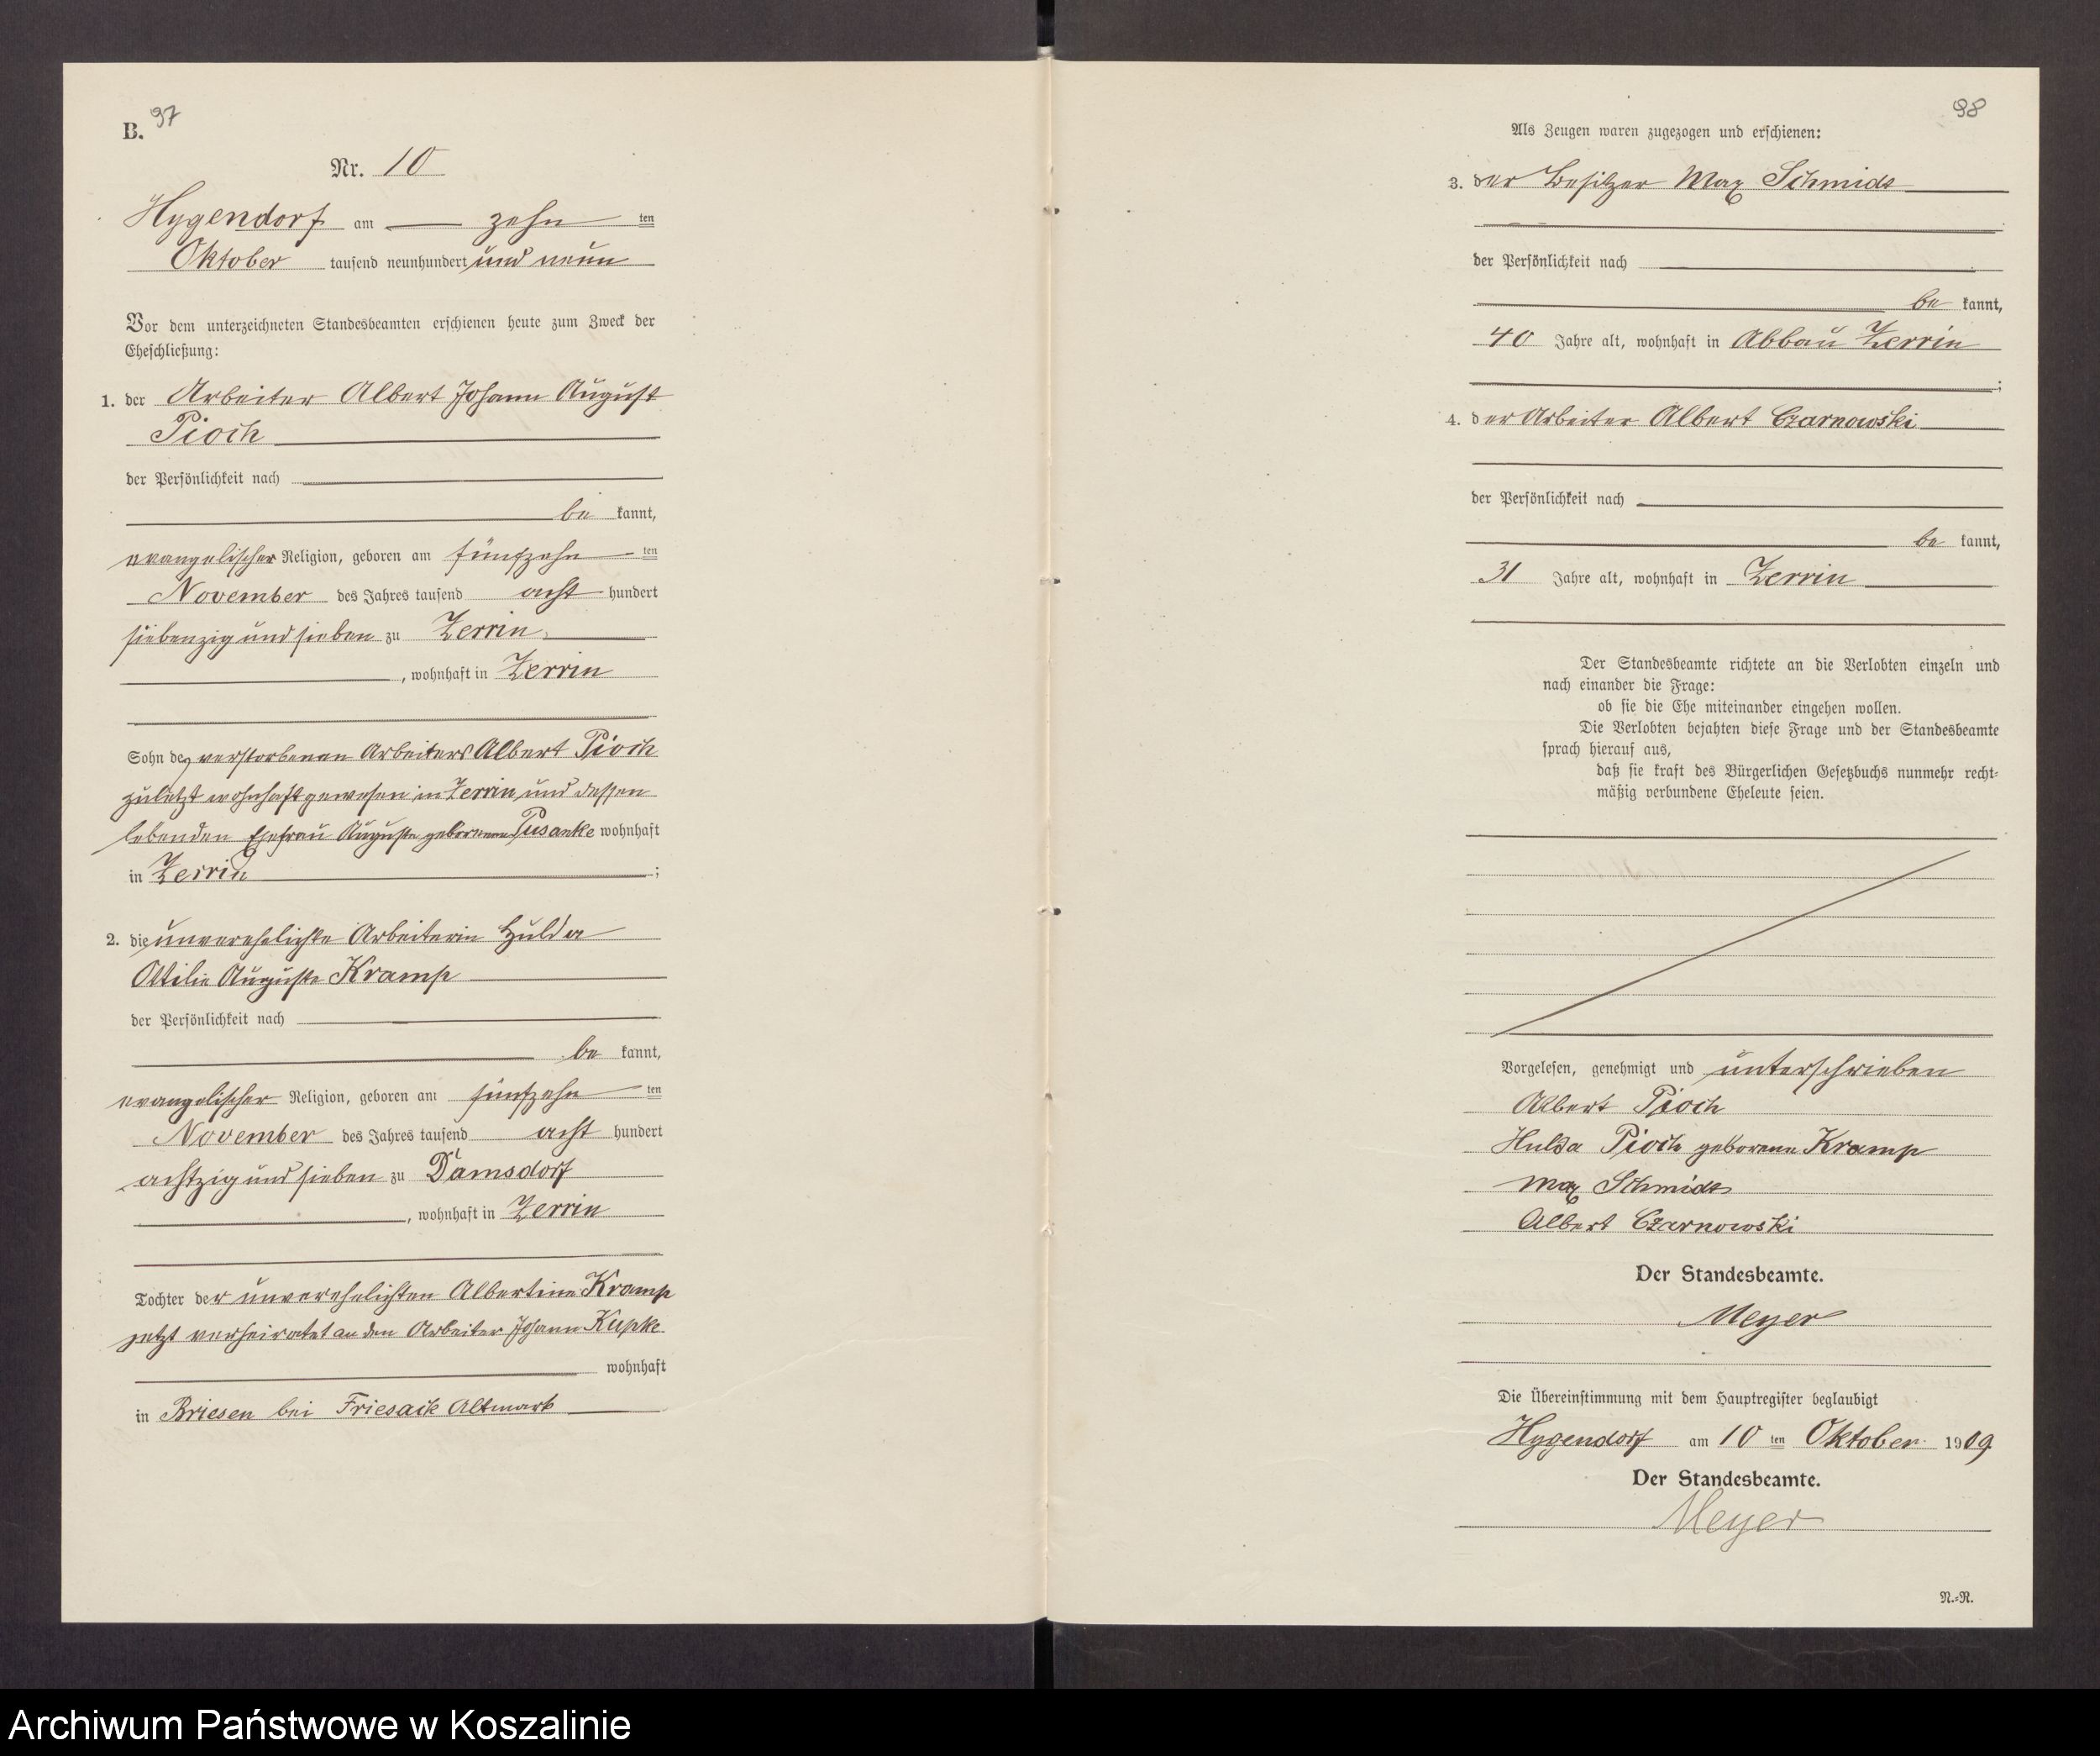 B. 97
Nr. 10
Hygendorf am zehn ten
Oktober tausend neunhundert und neun
Vor dem unterzeichneten Standesbeamten erschienen heute zum Zweck der
Eheschließung:
1. der Arbeiter Albert Johann August
Pioch
der Persönlichkeit nach
be kannt,
evangelischer Religion, geboren am fünfzehn ten
November des Jahres tausend acht hundert
siebenzig und sieben zu Zerrin,
, wohnhaft in Zerrin
Sohn des verstorbenen Arbeiters Albert Pioch
zuletzt wohnhaft gewesen in Zerrin und dessen
lebenden Ehefrau Auguste geborenen Pusanke wohnhaft
in Zerrin ;
2. die unverehelichte Arbeiterin Hulda
Ottilie Auguste Kramp
der Persönlichkeit nach
be kannt,
evangelischer Religion, geboren am fünfzehn ten
November des Jahres tausend acht hundert
achtzig und sieben zu Damsdorf
, wohnhaft in Zerrin
Tochter der unverehelichten Albertine Kramp
jetzt verheiratet an den Arbeiter Johann Kupke
wohnhaft
in Briesen bei Friesack Altmark
98
Als Zeugen waren zugezogen und erschienen:
3. der Besitzer Max Schmidt
der Persönlichkeit nach
be kannt,
40 Jahre alt, wohnhaft in Abbau Zerrin
;
4. der Arbeiter Albert Czarnowski
der Persönlichkeit nach
be kannt,
31 Jahre alt, wohnhaft in Zerrin
Der Standesbeamte richtete an die Verlobten einzeln und
nach einander die Frage:
ob sie die Ehe miteinander eingehen wollen.
Die Verlobten bejahten diese Frage und der Standesbeamte
sprach hierauf aus,
daß sie kraft des Bürgerlichen Gesetzbuchs nunmehr recht-
mäßig verbundene Eheleute seien.
Vorgelesen, genehmigt und unterschrieben
Albert Pioch
Hulda Pioch geborene Kramp
Max Schmidt
Albert Czarnowski
Der Standesbeamte.
Meyer
Die Übereinstimmung mit dem Hauptregister beglaubigt
Hygendorf am 10 ten Oktober 1909
Der Standesbeamte.
Meyer
N.-R.
Archiwum Państwowe w Koszalinie